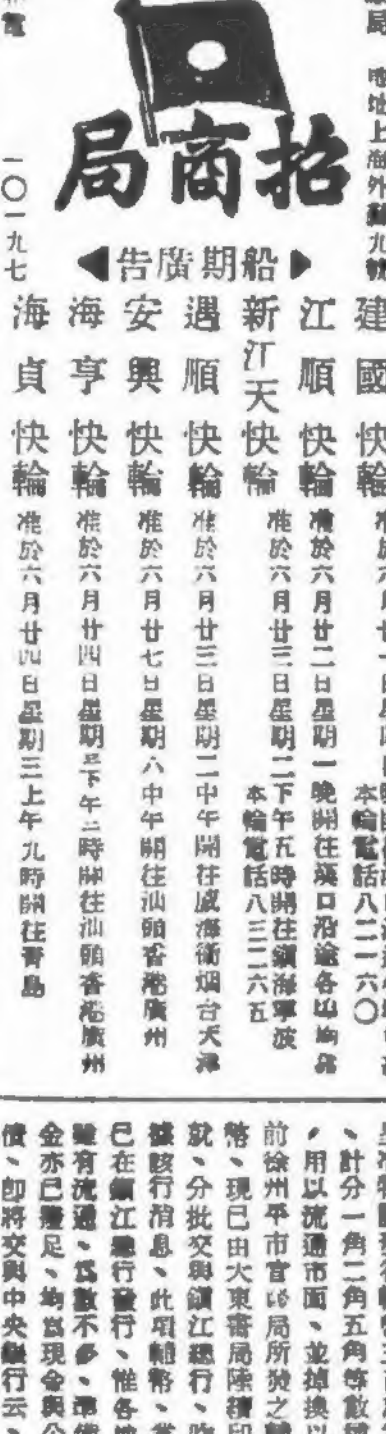 招商局
船期廣告
地址上海外灘九號
建國快輪
本輪電話八二一六〇
江順快輪 准於六月廿二日星期一晚開往漢口沿途各埠均靠
新江天快輪 准於六月廿三日星期二下午五時開往鎮海寧波
本輪電話八三二六五
遇順快輪 准於六月廿三日星期二中午開往威海衛烟台天津
安興快輪 准於六月廿七日星期六中午開往汕頭香港廣州
海亨快輪 准於六月廿四日星期三下午二時開往汕頭香港廣州
海貞快輪 准於六月廿四日星期三上午九時開往青島
一〇一九七
、計分一角二角五角等數種
、用以流通市面、並掉換以
前徐州平市官錢局所發之
幣、現已由大東書局陸續印
就、分批交與鎮江總行、
據該行消息、此項輔幣、
已在鎮江總行發行、惟各
雖有流通、為數不多、準備
金亦已籌足、均為現金與公
債、即將交與中央銀行云、